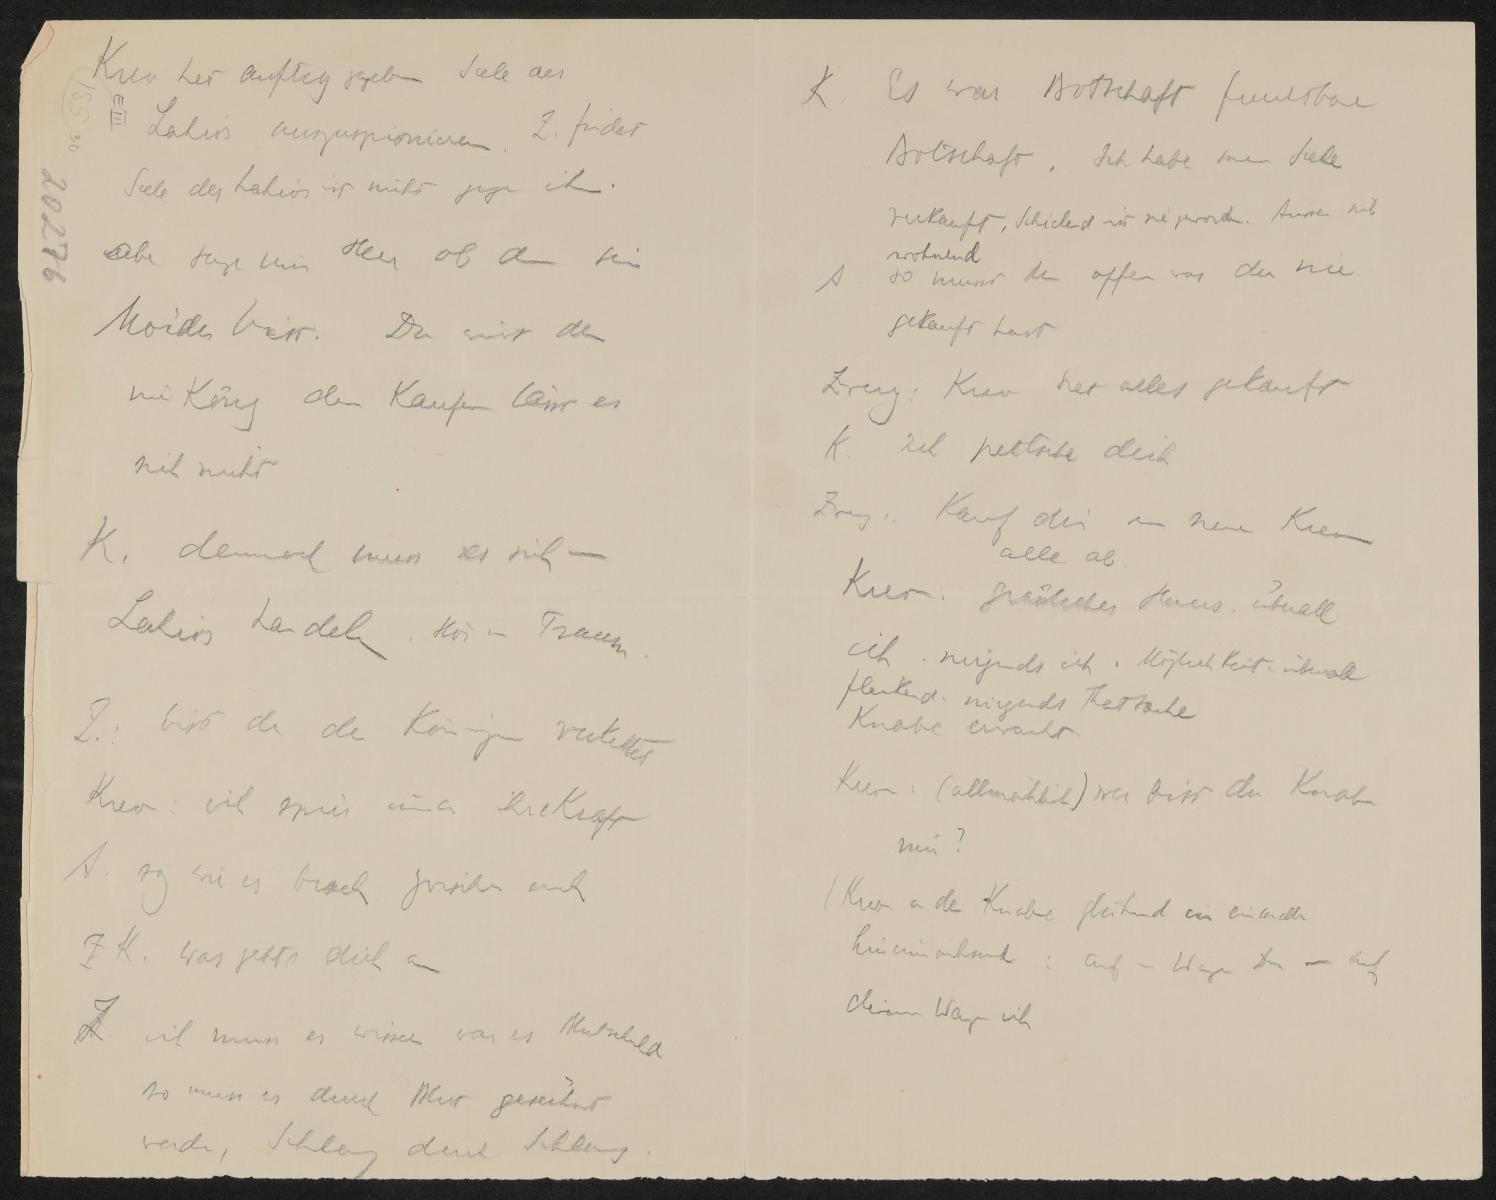 Kreon hat auftrag gegeben Seele des
Lakios auszuspionieren. Z. findet
Seele des Lakios ist nicht gegen ihn.
aber sage mir Herr ob du sein
Mörder bist. Du wirst
nie König denn Kaufen lässt es
sich nicht
K. dennoch muss es sich
Lakios handeln. Traum.
Z.: bist du der Königin verkettet
Kreon: ich spür ihre Kraft
A. sag wie es brach zwischen euch
K. was gehts dich an
Z. ich muss es wissen war es Blutschuld
so muss es durch Blut gesühnt
werden, Schlang durch Schlang.
E III
155
30
20276
K. Es war Botschaft furchtbare
Botschaft. Ich habe meine Seele
verkauft, Schielend ist sie geworden. Aussen sich
wohnend
A so musst du opfern was du nie
gekauft hast
Zwerg: Kreon hat alles gekauft
K. ich peitsche dich
Zwerg: Kauf dir neuen Kreon
alle ab.
Kreon: grässliches Haus. überall
ich. nirgends ich. Möglichkeit überall
flackernd. nirgends Thatsache
Knabe erwacht.
Kreon: (allmählich) wer bist du Knabe
mir?
(Kreon der Knabe gleitend in einander
hineinwachsend: auf Wage Du – auf
deiner Wage ich